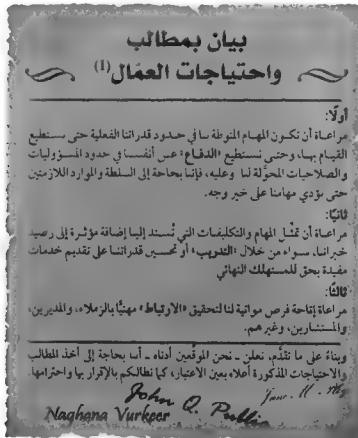 بيان بمطالب
واحتياجات العمّال(1)
أولًا:
مراعاة أن تكون المهام المنوطة بنا في حدود قدراتنا الفعلية حتى نستطيع
القيام بها، وحتى نستطيع «الدفاع» عن أنفسنا في حدود المسؤوليات
والصلاحيات المخوَّلة لنا وعليه، فإننا بحاجة إلى السلطة والموارد اللازمتين
حتى نؤدي مهامنا على خير وجه.
ثانيًا:
مراعاة أن تمثِّل المهام والتكليفات التي تُسند إلينا إضافة مؤثرة إلى رصيد
خبراتنا، سواء من خلال «التدريب» أو تحسين قدراتنا على تقديم خدمات
مفيدة بحق للمستهلك النهائي
ثالثًا:
مراعاة إتاحة فرص مواتية لنا لتحقيق «الارتباط» مهنيًّا بالزملاء، والمديرين،
والمستشارين، وغيرهم.
وبناءً على ما تقدَّم، نعلن - نحن الموقِّعين أدناه - أننا بحاجة إلى أخذ المطالب
والاحتياجات المذكورة أعلاه بعين الاعتبار، كما نطالبكم بالإقرار بها واحترامها.
John Q. Public
Naghana Vurkeer